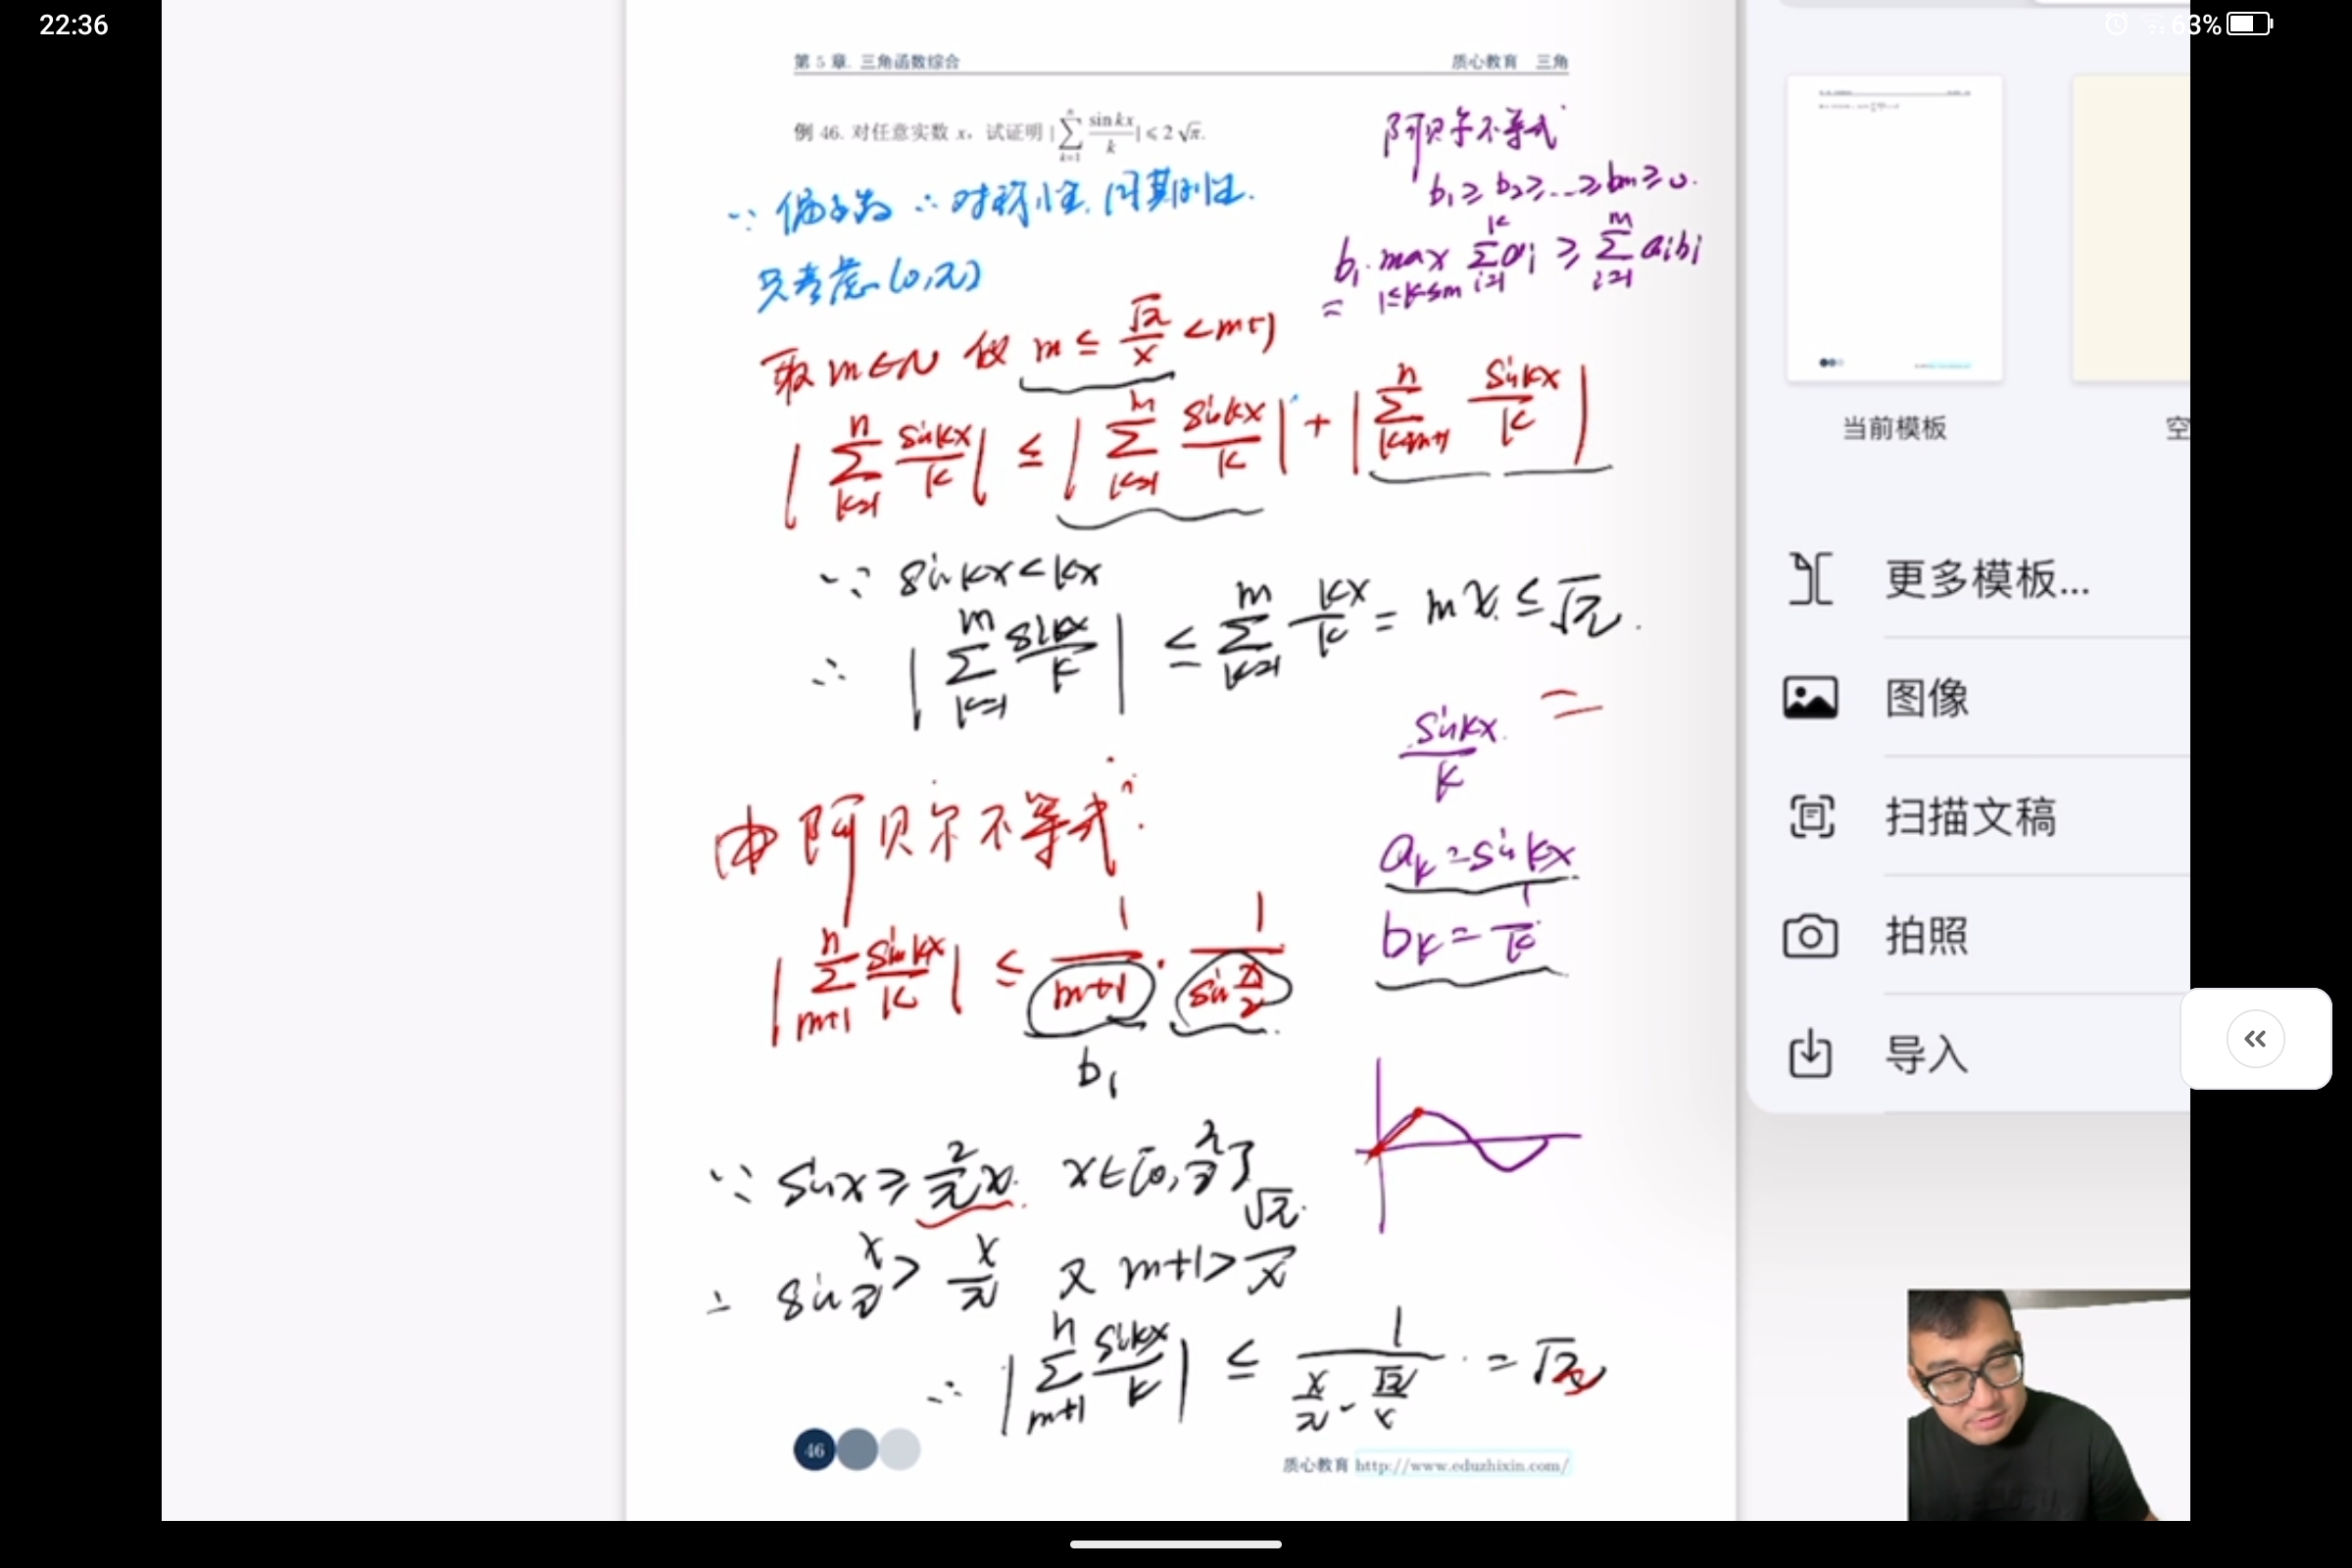 22:36
63%
第 5 章. 三角函数综合
质心教育 三角
例 46. 对任意实数 x，试证明 |∑_{k=1}^{n} sin kx / k| ⩽ 2√π.
阿贝尔不等式
b₁ ≥ b₂ ≥ ... ≥ bm ≥ 0.
b₁ · max_{1≤k≤m} ∑_{i=1}^{k} aᵢ ≥ ∑_{i=1}^{m} aᵢbᵢ
∵ 偶函数 ∴ 对称性. 周期性.
只考虑 (0,π)
取 m∈N 使 m ≤ √π/x < m+1
|∑_{k=1}^{n} sinkx/k| ≤ |∑_{k=1}^{m} sinkx/k| + |∑_{k=m+1}^{n} sinkx/k|
∵ sinkx < kx
∴ |∑_{k=1}^{m} sinkx/k| ≤ ∑_{k=1}^{m} kx/k = mx ≤ √π.
sinkx/k =
由阿贝尔不等式:
aₖ = sinkx
bₖ = 1/k
|∑_{m+1}^{n} sinkx/k| ≤ 1/(m+1) · 1/(sin x/2)
b₁
∵ sinx ≥ 2/π x. x∈[0, π/2]
∴ sin x/2 > x/π 又 m+1 > √π/x
∴ |∑_{m+1}^{n} sinkx/k| ≤ 1/(x/π · √π/x) = √π
46
质心教育 http://www.eduzhixin.com/
当前模板
空
更多模板...
图像
扫描文稿
拍照
导入